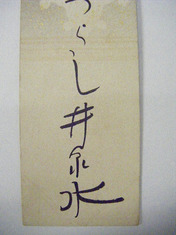 つらし井泉水